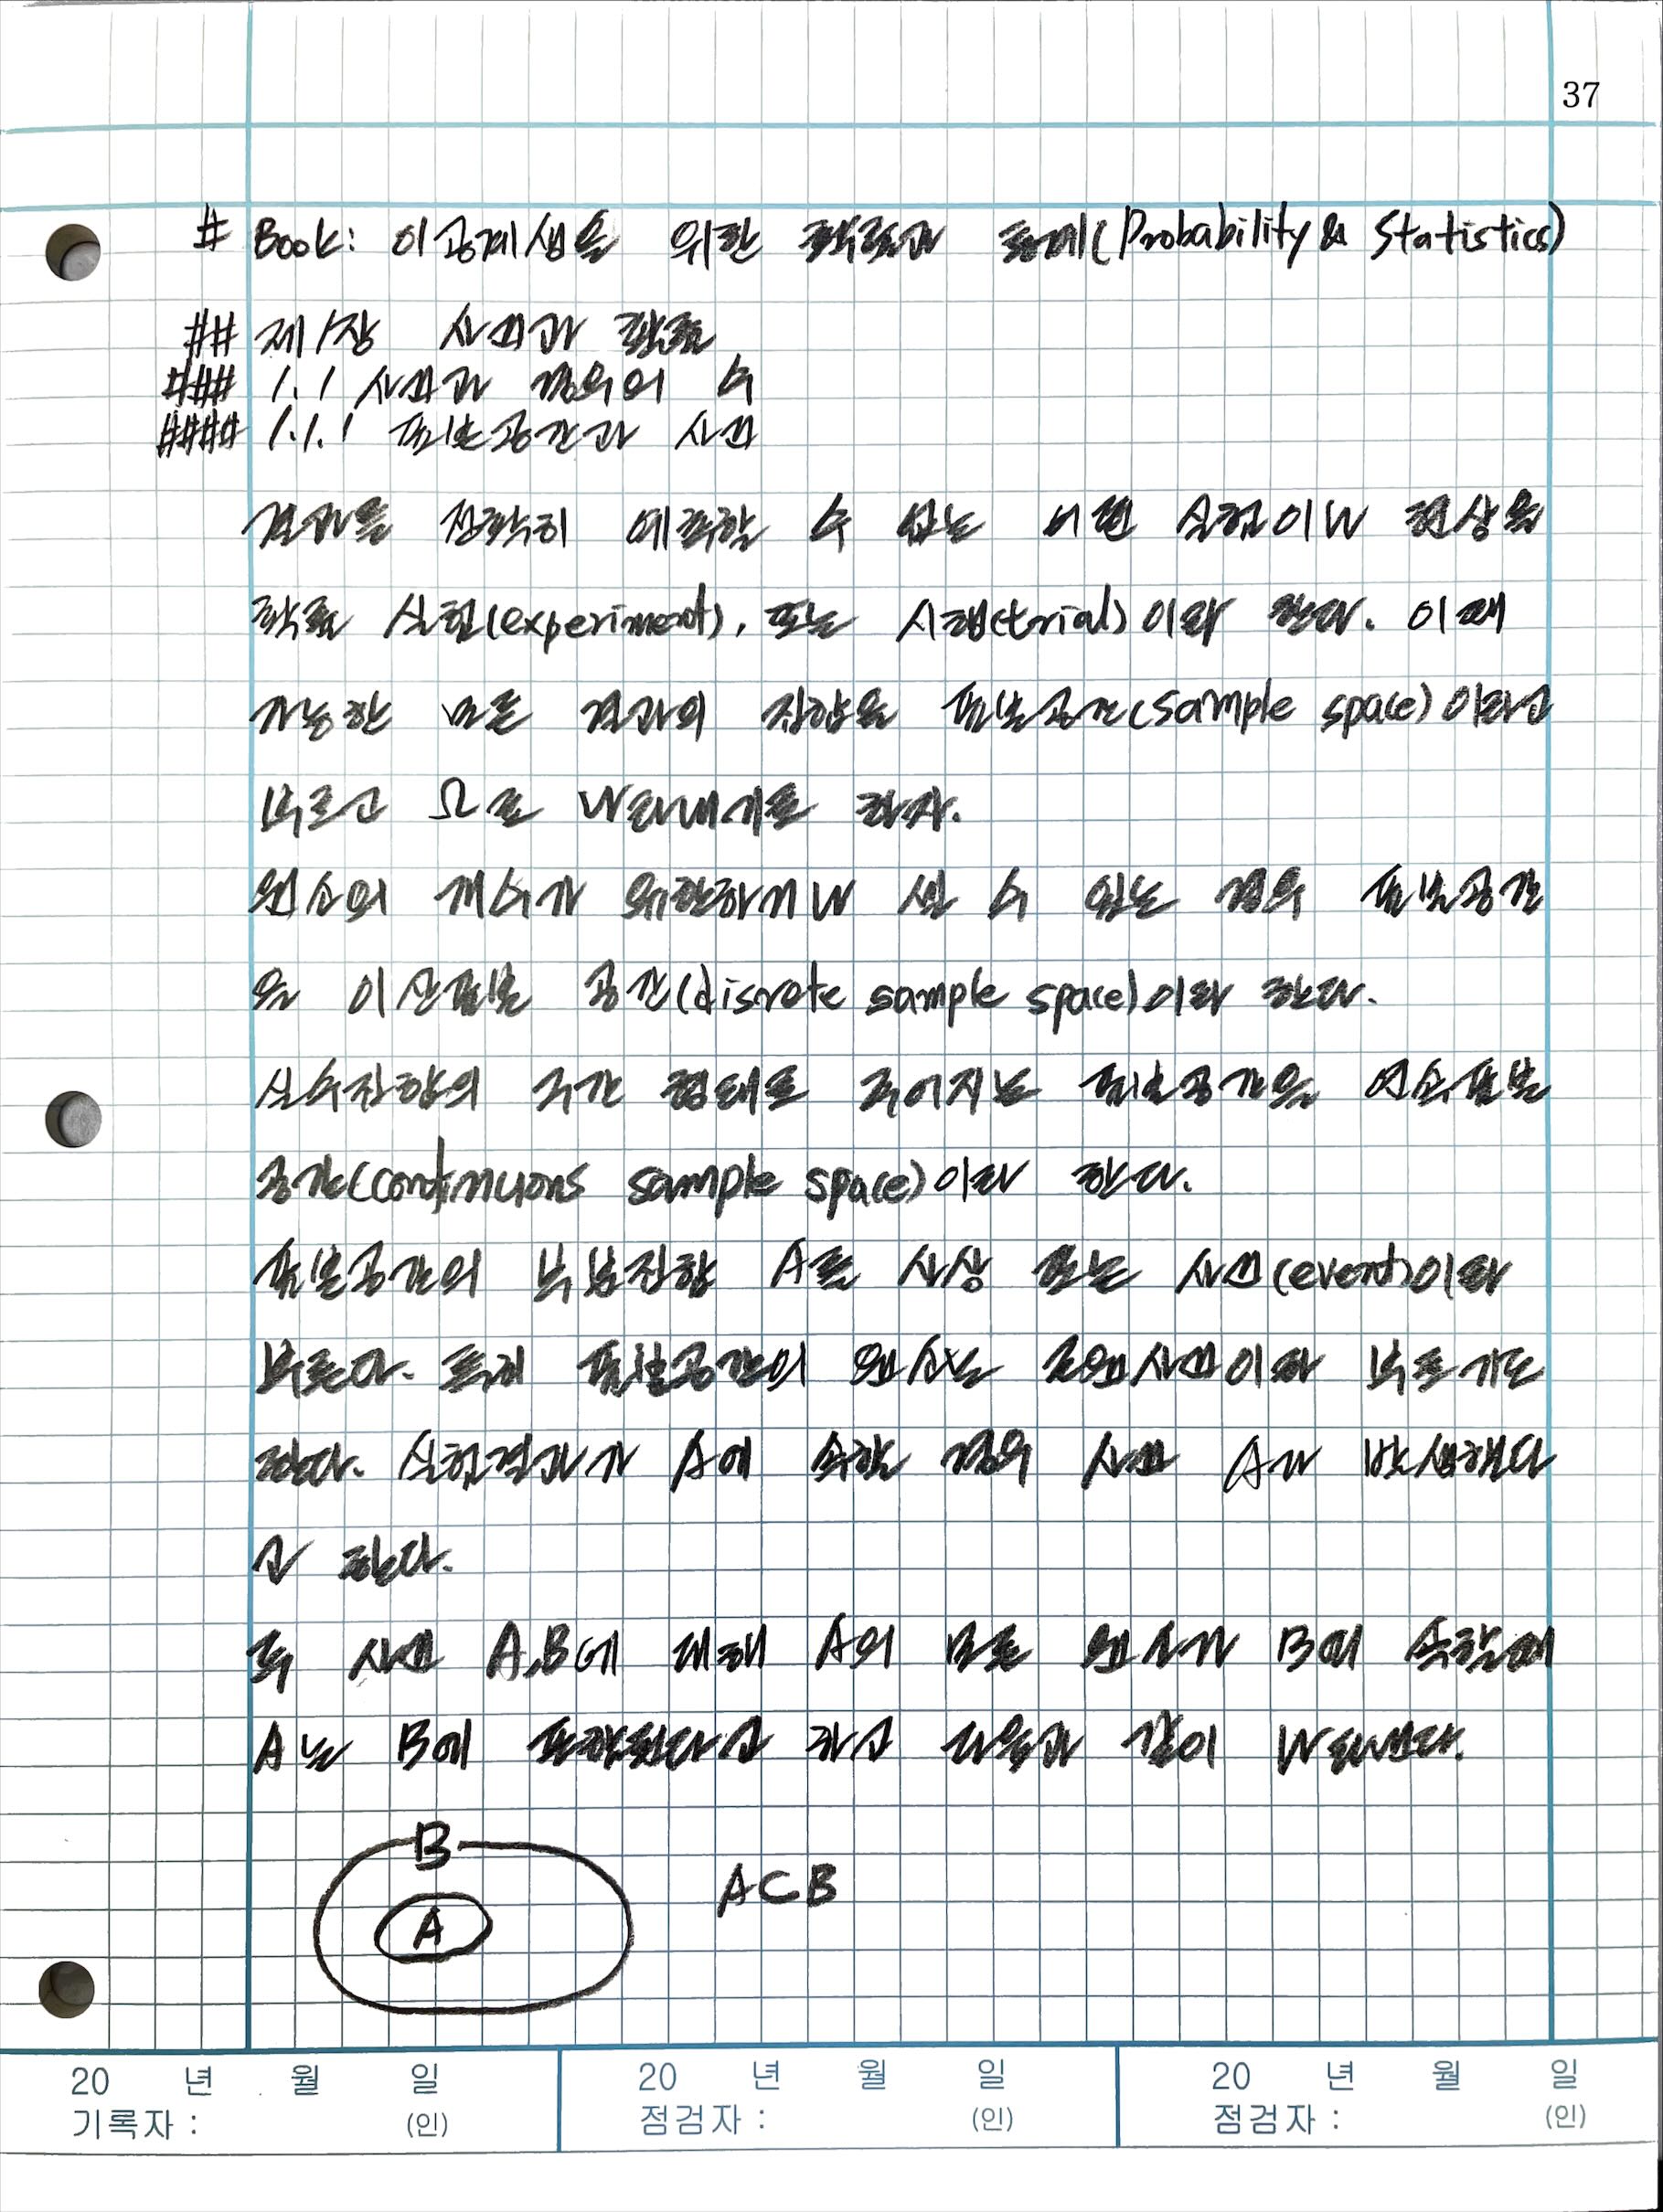 37
# Book: 이공계생을 위한 확률과 통계(Probability & Statistics)
## 제1장 사건과 확률
### 1.1 사건과 경우의 수
#### 1.1.1 표본공간과 사건
결과를 정확히 예측할 수 없는 어떤 실험이나 현상을
확률 실험(experiment), 또는 시행(trial)이라 한다. 이때
가능한 모든 결과의 집합을 표본공간(sample space)이라고
부르고 Ω로 나타내기로 하자.
원소의 개수가 유한하거나 셀 수 있는 경우 표본공간
을 이산표본 공간(disrete sample space)이라 한다.
실수집합의 구간 형태로 주어지는 표본공간을 연속표본
공간(continuous sample space)이라 한다.
표본공간의 부분집합 A를 사상 또는 사건(event)이라
부른다. 특히 표본공간의 원소는 근원사건이라 부르기도
한다. 실험결과가 A에 속할 경우 사건 A가 발생했다
고 한다.
두 사건 A,B에 대해 A의 모든 원소가 B에 속할때
A는 B에 포함된다고 하고 다음과 같이 나타낸다.
B
A
A⊂B
20 년 월 일
기록자 : (인)
20 년 월 일
점검자 : (인)
20 년 월 일
점검자 : (인)